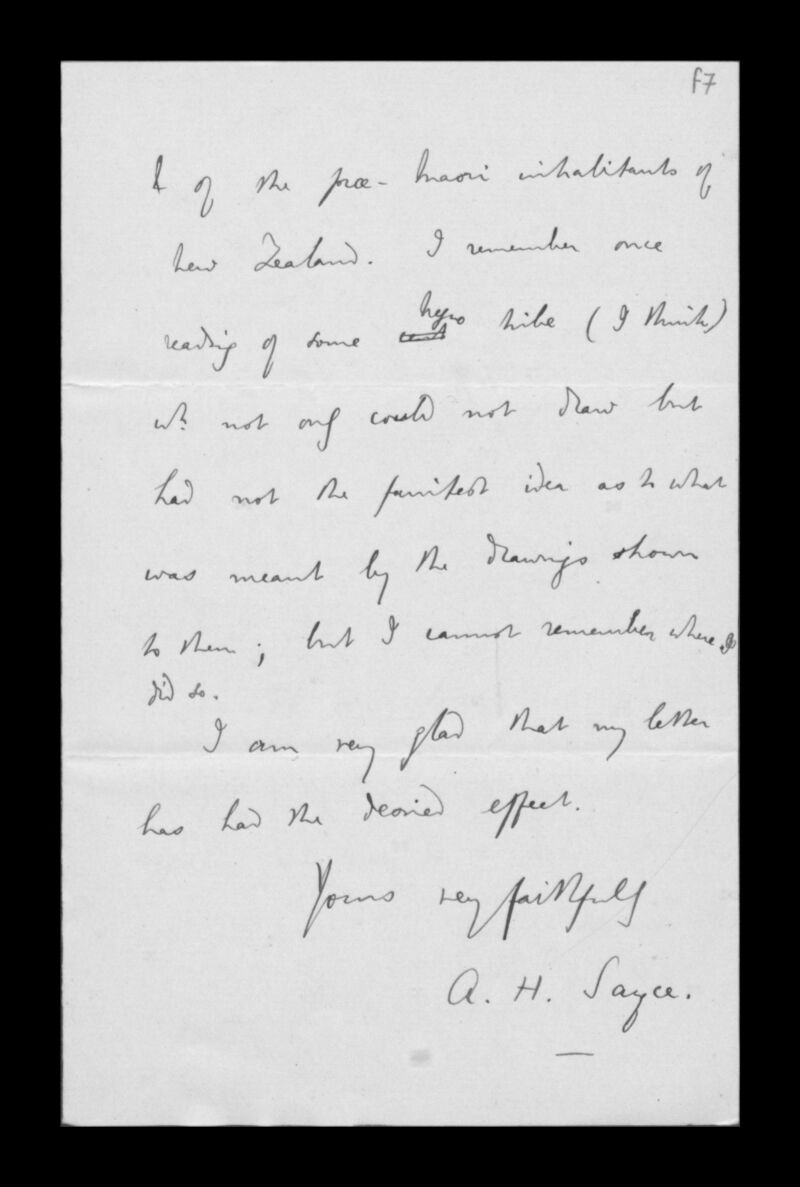 f7
& of the præ-Maori inhabitants of
New Zealand. I remember once
reading of some negro tribe (I think)
wh. not only could not draw but
had not the faintest idea as to what
was meant by the drawings shown
to them; but I cannot remember where I
did so.
I am very glad that my letter
has had the desired effect.
Yours very faithfully
A. H. Sayce.